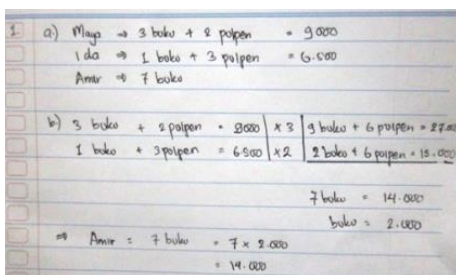 1 a) Maya → 3 buku + 2 polpen = 9000
Ida → 1 buku + 3 polpen = 6.500
Amir → 7 buku
b) 3 buku + 2 polpen = 9000 | x 3 | 9 buku + 6 polpen = 27.000
1 buku + 3 polpen = 6.500 | x 2 | 2 buku + 6 polpen = 13.000
7 buku = 14.000
buku = 2.000
⇒ Amir = 7 buku = 7 x 2.000
= 14.000